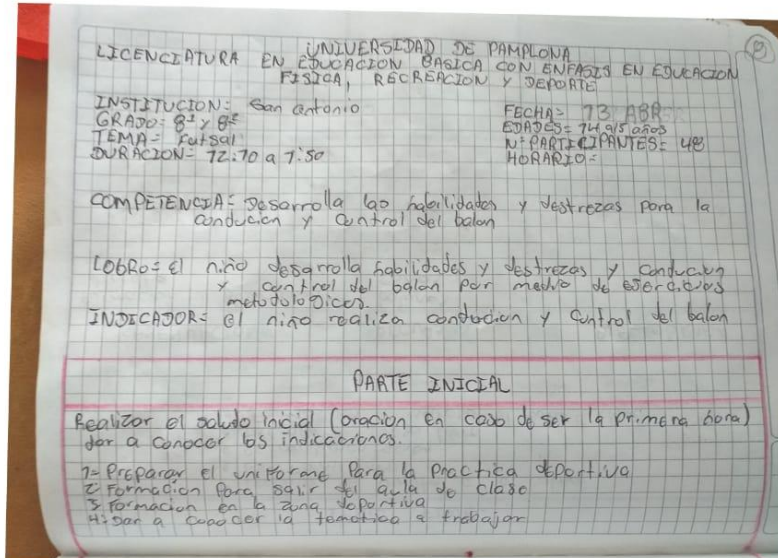 UNIVERSIDAD DE PAMPLONA
LICENCIATURA EN EDUCACION BASICA CON ENFASIS EN EDUCACION
FISICA, RECREACION Y DEPORTE
INSTITUCION= San antonio
FECHA= 13 ABR
GRADO= 8² y 8²
EDADES= 14 a 15 años
TEMA= Futsal
N= PARTICIPANTES= 48
DURACION= 12:10 a 1:50
HORARIO=
COMPETENCIA= Desarrolla las habilidades y destrezas para la
conducion y control del balon
LOGRO= El niño desarrolla habilidades y destrezas y conducion
y control del balon por medio de ejercicios
metodologicos.
INDICADOR= el niño realiza conducion y control del balon
PARTE INICIAL
Realizar el saludo inicial (oracion en caso de ser la primera hora)
dar a conocer los indicaciones.
1= Preparar el uniforme para la practica deportiva
2 Formacion para salir del aula de clase
3 formacion en la zona deportiva
4: Dar a conocer la tematica a trabajar